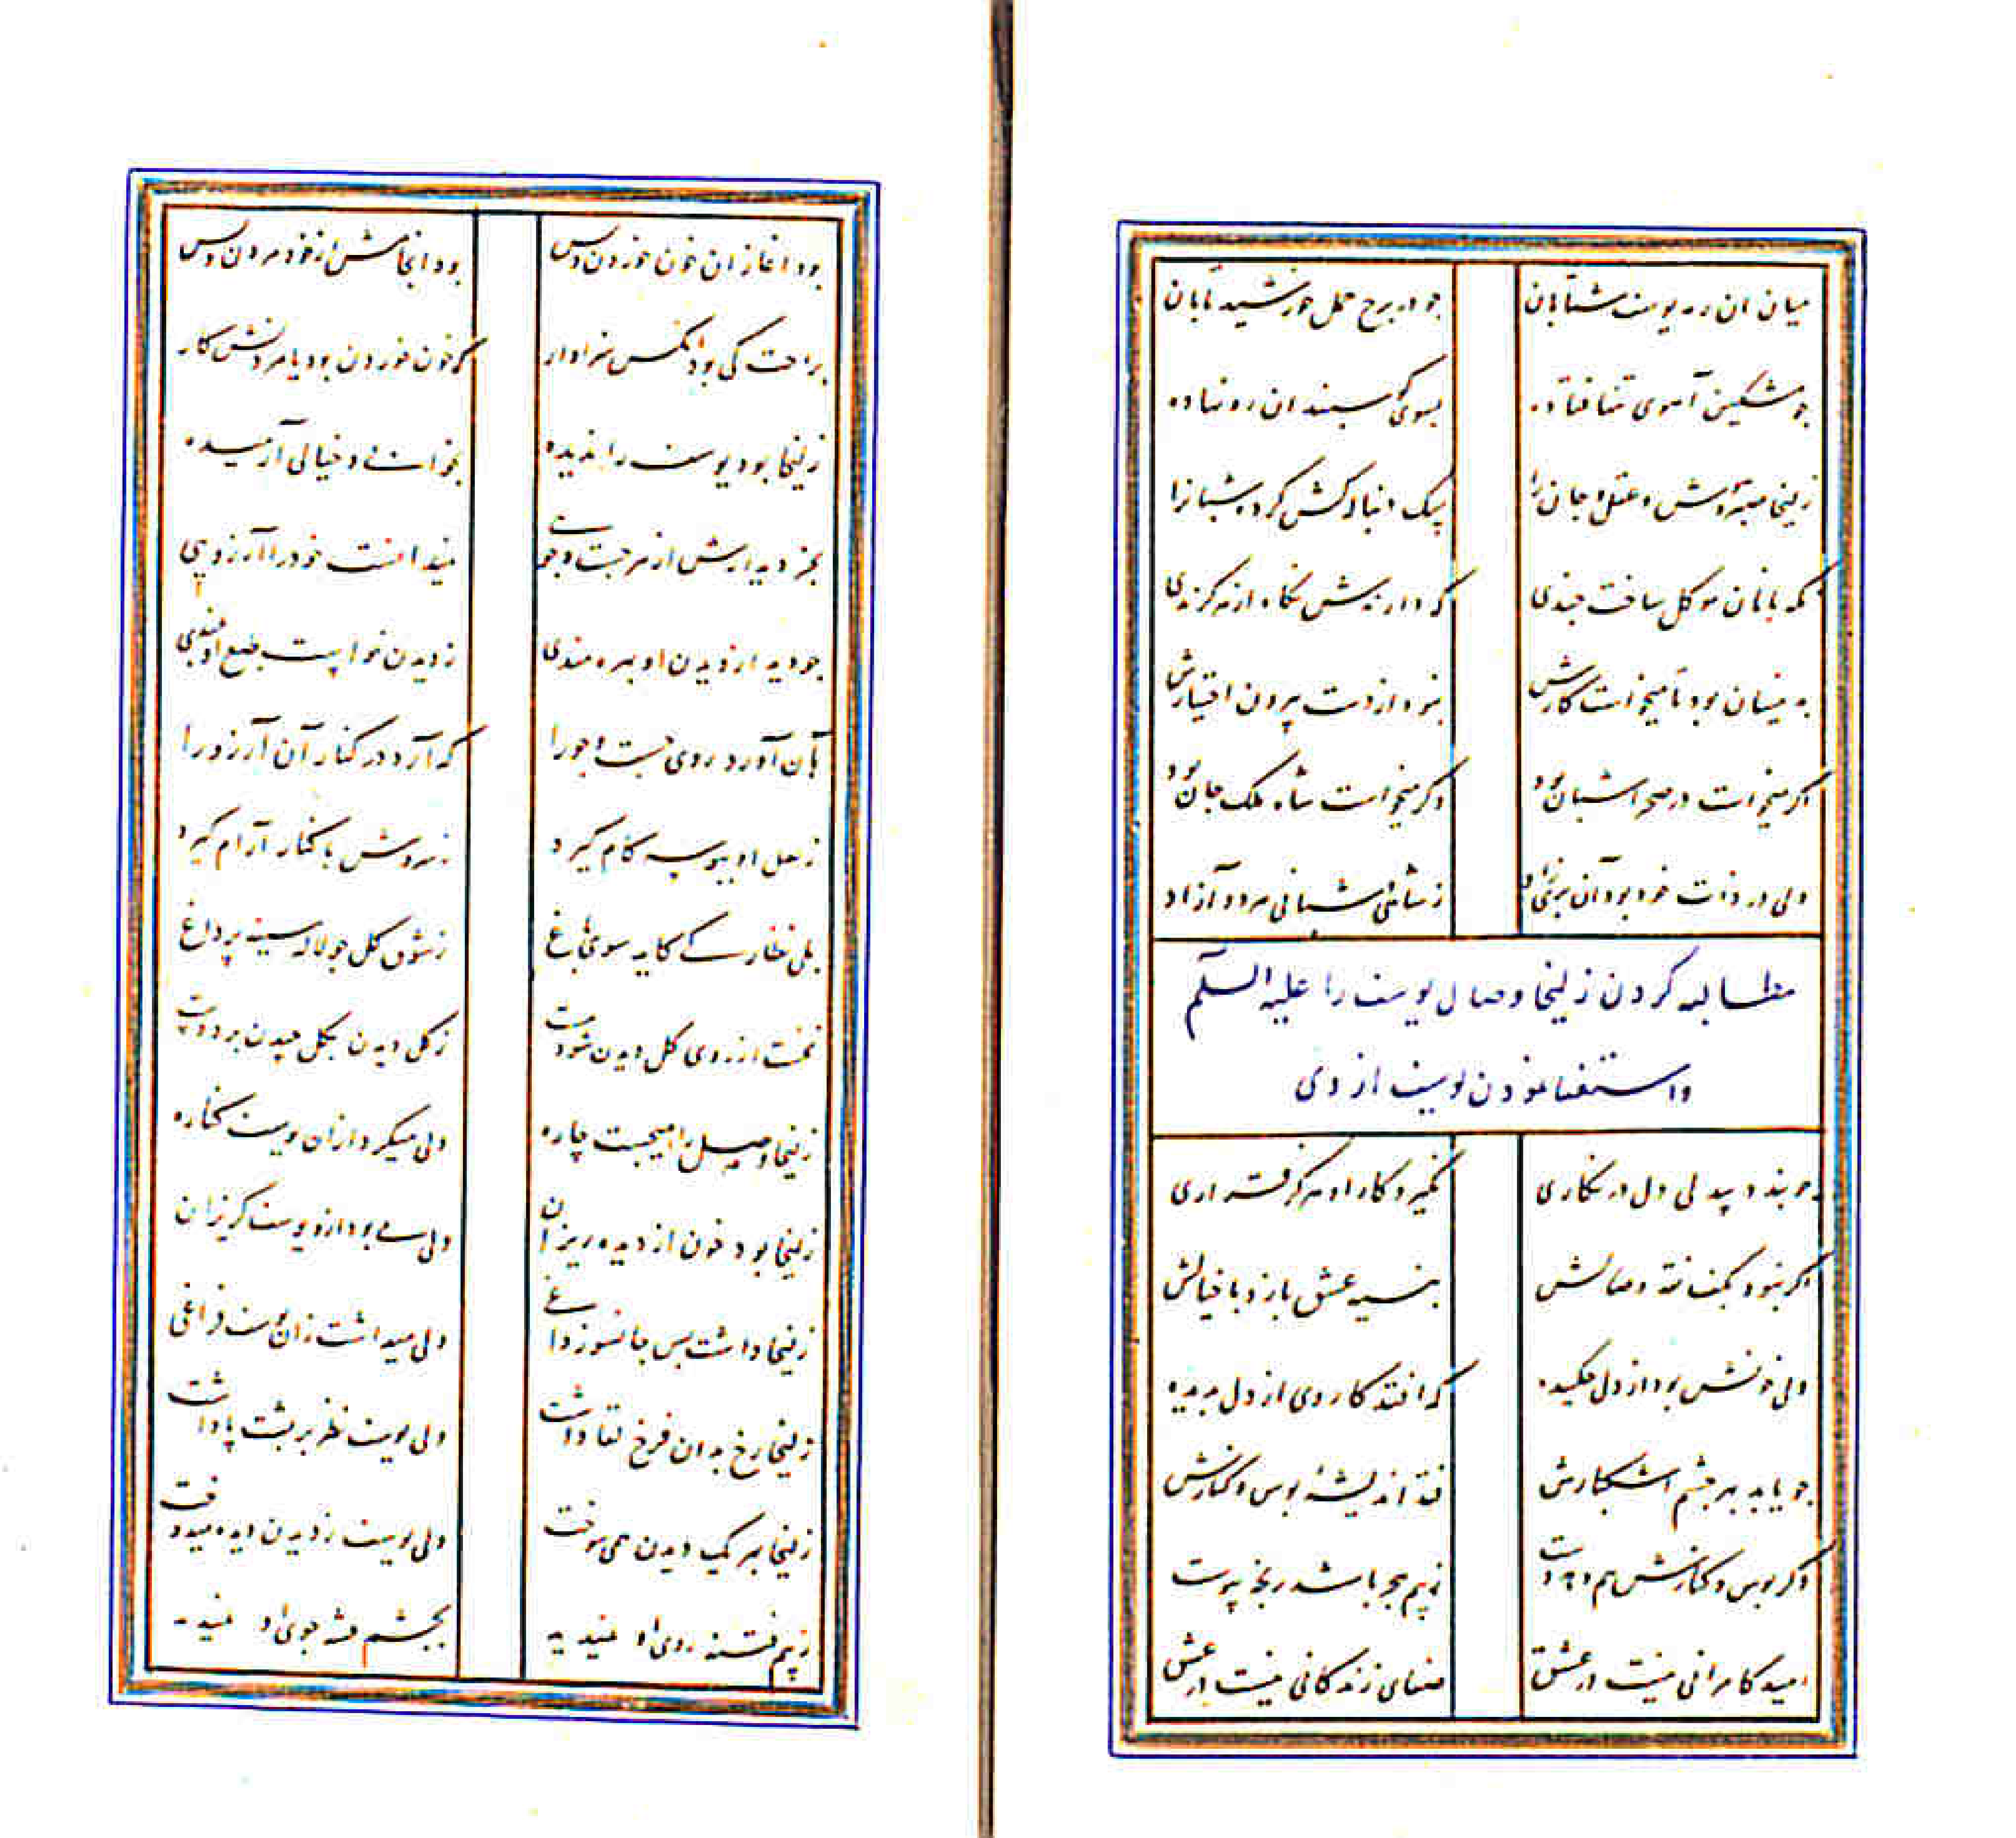 میان ان رمه یوسف شتابان
جو در برج حمل خورشید تابان
جو مشکین آهوی تنها فتاده
بسوی گوسبندان رو نهاده
زلیخا صبر و هوش و عقل و جان را
سک دنباله کش کرد شبانرا
نگهبانان موکل ساخت جندی
که دارندش نگاه از هر گزندی
بدینسان بود تا میخواست کارش
نبود از دست بیرون اختیارش
اگر میخواست در صحرا شبان بود
وگر میخواست شاه ملک جان بود
ولی در ذات خود بود آن پریزاد
ز شاهی و شبانی هر دو آزاد
مطالبه کردن زلیخا وصال یوسف را علیه السلم
واستغنا نمودن یوسف از وی
جو بندد بیدلی دل در نگاری
نگیرد کار او هرگز قراری
اگر نبود بکف نقد وصالش
بنسیه عشق بازد با خیالش
ولی خونش بود از دل چکیده
که افتد کار وی از دل بدیده
جو یابد بهره جشم اشکبارش
فتد اندیشه بوس و کنارش
وگر بوس و کنارش هم دهد دست
ز بیم هجر باشد رنجه پیوست
امید کامرانی نیست در عشق
صفای زندگانی نیست در عشق
بود اغاز ان خون خوردن و بس
بود انجامش از خود مردن و بس
براحت کی بود انکس سزاوار
که خون خوردن بود یا مردنش کار
زلیخا بود یوسف را ندیده
بخوابی و خیالی آرمیده
بجز دیدارش از هر جست و جویی
نمیدانست خود را آرزویی
جو دید از دیدن او بهره مندی
ز دیدن خواست طبع او بلندی
بآن آورد روی جست و جو را
که آرد در کنار آن آرزو را
ز لعل او ببوسه کام گیرد
ز سروش با کنار آرام گیرد
بلی نظارکی کاید سوی باغ
ز شوق گل جو لاله سینه پر داغ
نخست از روی گل دیدن شود مست
ز گل دیدن بگل چیدن برد دست
زلیخا وصل را میجست چاره
ولی میکرد از ان یوسف کناره
زلیخا بود خون از دیده ریزان
ولی می بود ازو یوسف گریزان
زلیخا داشت بس جانسوز داغی
ولی میداشت زان یوسف فراغی
زلیخا رخ بدان فرخ لقا داشت
ولی یوسف نظر بر پشت پا داشت
زلیخا بهر یک دیدن همی سوخت
ولی یوسف ز دیدن دیده میدوخت
ز بیم فتنه روی او نمیدید
بجشم فتنه جوی او نمیدید